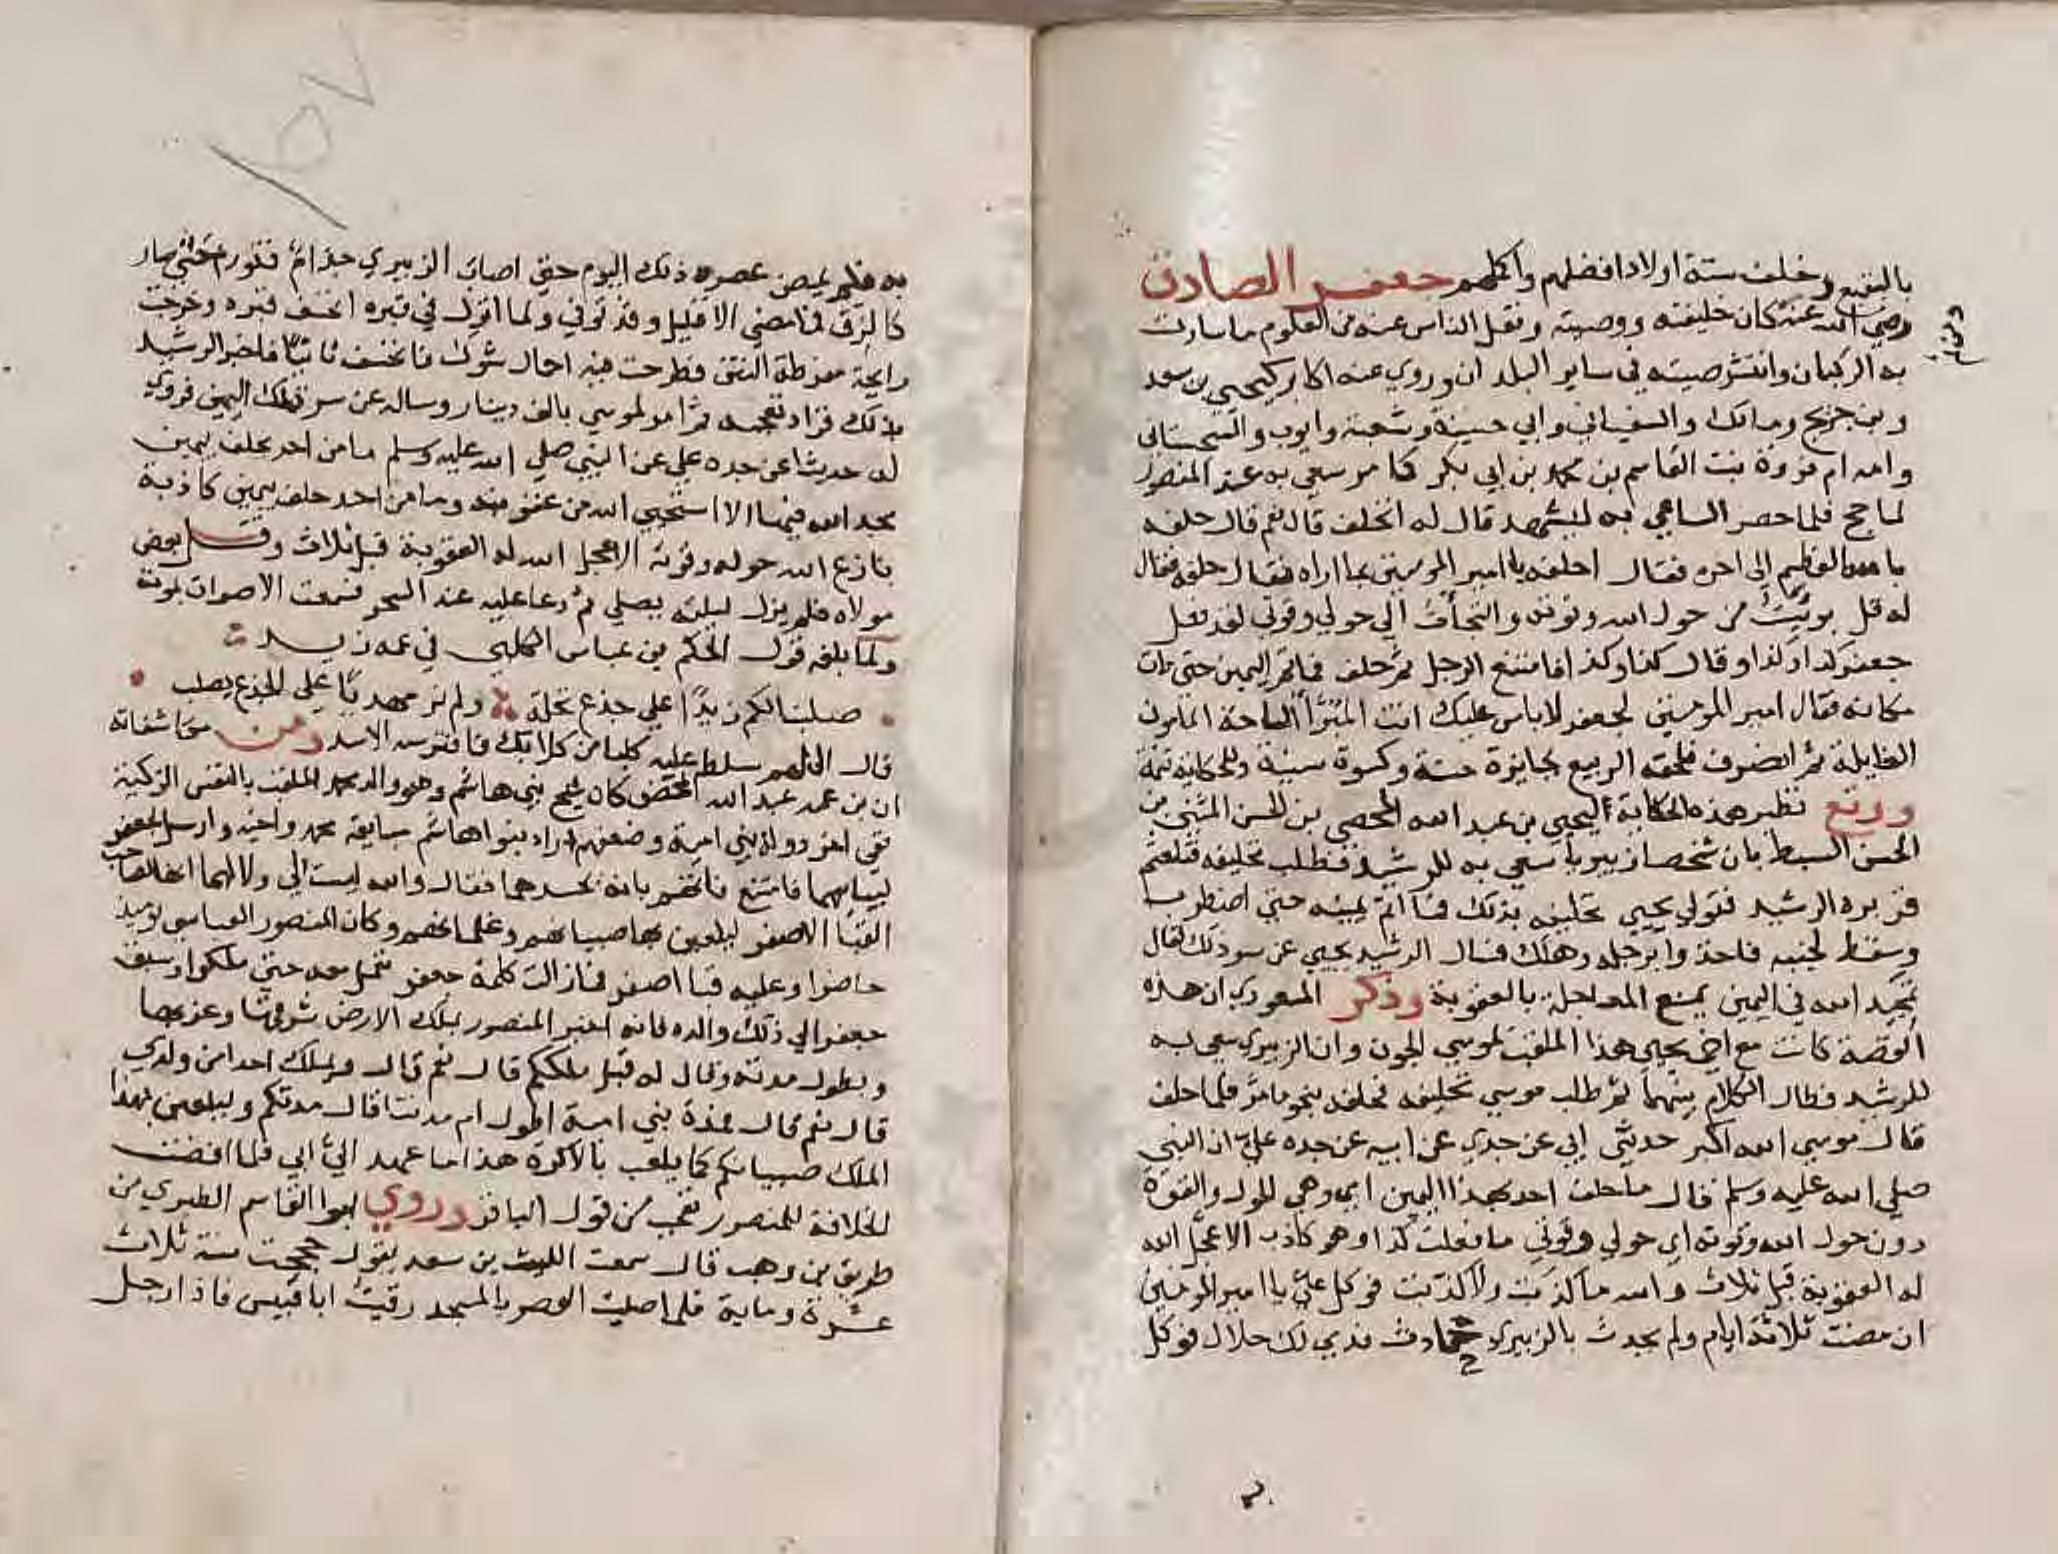 بالبقيع وخلف ستة اولاد افضلهم واكملهم جعفر الصادق
رضي الله عنه كان خليفته ووصيه ونقل الناس عنه من العلوم ما سارت
به الركبان وانتشر صيته في ساير البلدان وروي عنه اكابر كيحيي بن سعد
وبن جريج ومالك والسفيانين وابي حنيفة وشعبة وايوب والسجستاني
وامه ام فروة بنت القاسم بن محمد بن ابي بكر كما مر سعي به عند المنصور
لما حج فلما حضر الساعي به ليشهد قال له اتحلف قال نعم قال حلفه
بالله العظيم الى اخره فقال احلفه يا امير المومنين بما اراه فقال حلفه فقال
له قل برئت من حول الله وقوته والتجأت الي حولي وقوتي لقد فعل
جعفر كذا وكذا وقال كذا وكذا فامتنع الرجل ثم حلف فما تم اليمين حتى مات
مكانه فقال امير المومنين لجعفر لاباس عليك انت المبرأ الساحة المامون
الغايلة ثم انصرف فلحقه الربيع بجايزة حسنة وكسوة سنية وللحكاية تتمة
ووقع نظير هذه الحكاية ليحيي بن عبد الله المحض بن الحسن المثني بن
الحسن السبط بان شخصا زبيريا سعي به للرشيد فطلب تحليفه فتلعثم
فزبره الرشيد فتولي يحيي تحليفه بذلك فما اتم يمينه حتي اضطرب
وسقط لجنبه فاخذوا برجله وهلك فسال الرشيد يحيي عن سر ذلك فقال
تمجيد الله في اليمين يمنع المعاجلة بالعقوبة وذكر المسعودي ان هذه
القصة كانت مع اخي يحيي هذا الملقب بموسي الجون وان الزبيري سعي به
للرشيد فطال الكلام بينهما ثم طلب موسي تحليفه فحلفه بنحو ما مر فلما حلف
قال موسي الله اكبر حدثني ابي عن جدي عن ابيه عن جده علي ان النبي
صلي الله عليه وسلم قال ما حلف احد بهذا اليمين اي وهي الحول والقوة
دون حول الله وقوته اي حولي وقوتي ما فعلت كذا وهو كاذب الا عجل الله
له العقوبة قبل ثلاث والله ما كذبت ولا كذبت فوكل علي يا امير المومنين
ان مضت ثلاثة ايام ولم يحدث بالزبيري حادث فدمي لك حلال فوكل
به فلم يمض عصر ذلك اليوم حتي اصاب الزبيري جذام فتورم حتي صار
كالزق فما مضي الا قليل وقد توفي ولما انزل في قبره انخسف قبره وخرجت
رايحة مفرطة النتن فطرحت فيه احمال شوك فانخسف ثانيا فاخبر الرشيد
بذلك فزاد تعجبه ثم امر لموسي بالف دينار وساله عن سر تلك اليمين فروي
له حديثا عن جده علي عن النبي صلي الله عليه وسلم ما من احد يحلف بيمين
مجد الله فيها الا استحيي الله من عقوبته وما من احد حلف بيمين كاذبة
نازع الله حوله وقوته الا عجل الله له العقوبة قبل ثلاث وقتل بعض
مولاه فلم يزل ليلته يصلي ثم دعا عليه عند السحر فسمعت الاصوات بموته
ولما بلغه قول الحكم بن عباس الكلبي في عمه زيد
صلبنا لكم زيدا علي جذع نخلة ولم نر مهديا علي الجذع يصلب
قال اللهم سلط عليه كلبا من كلابك فافترسه الاسد ومن مكاشفاته
ان بن عمه عبد الله المحض كان شيخ بني هاشم وهو والد محمد الملقب بالنفس الزكية
ففي اخر دولة بني امية وضعفهم اراد بنوا هاشم مبايعة محمد واخيه وارسل لجعفر
ليبايعهما فامتنع فاتهم بانه يحسدهما فقال والله ليست لي ولا لهما انها لصاحب
القبا الاصفر ليلعبن بها صبيانهم وغلمانهم وكان المنصور العباسي يوميذ
حاضرا وعليه قبا اصفر فما زالت كلمة جعفر تعمل معه حتي ملكوا وسبق
جعفر الي ذلك والده فانه اخبر المنصور بملك الارض شرقها وغربها
وبطول مدته وقال له قبل ملككم قال نعم قال ويملك احد من ولدي
قال نعم قال فمدة بني امية اطول ام مدتنا قال مدتكم وليلعبن بهذا
الملك صبيانكم كما يلعب بالاكرة هذا ما عهد الي ابي فلما افضت
الخلافة للمنصور تعجب من قول الباقر وروي ابوا القاسم الطبري من
طريق بن وهب قال سمعت الليث بن سعد يقول حججت سنة ثلاث
عشرة وماية فلما صليت العصر بالمسجد رقيت ابا قبيس فاذا رجل
١٥٧